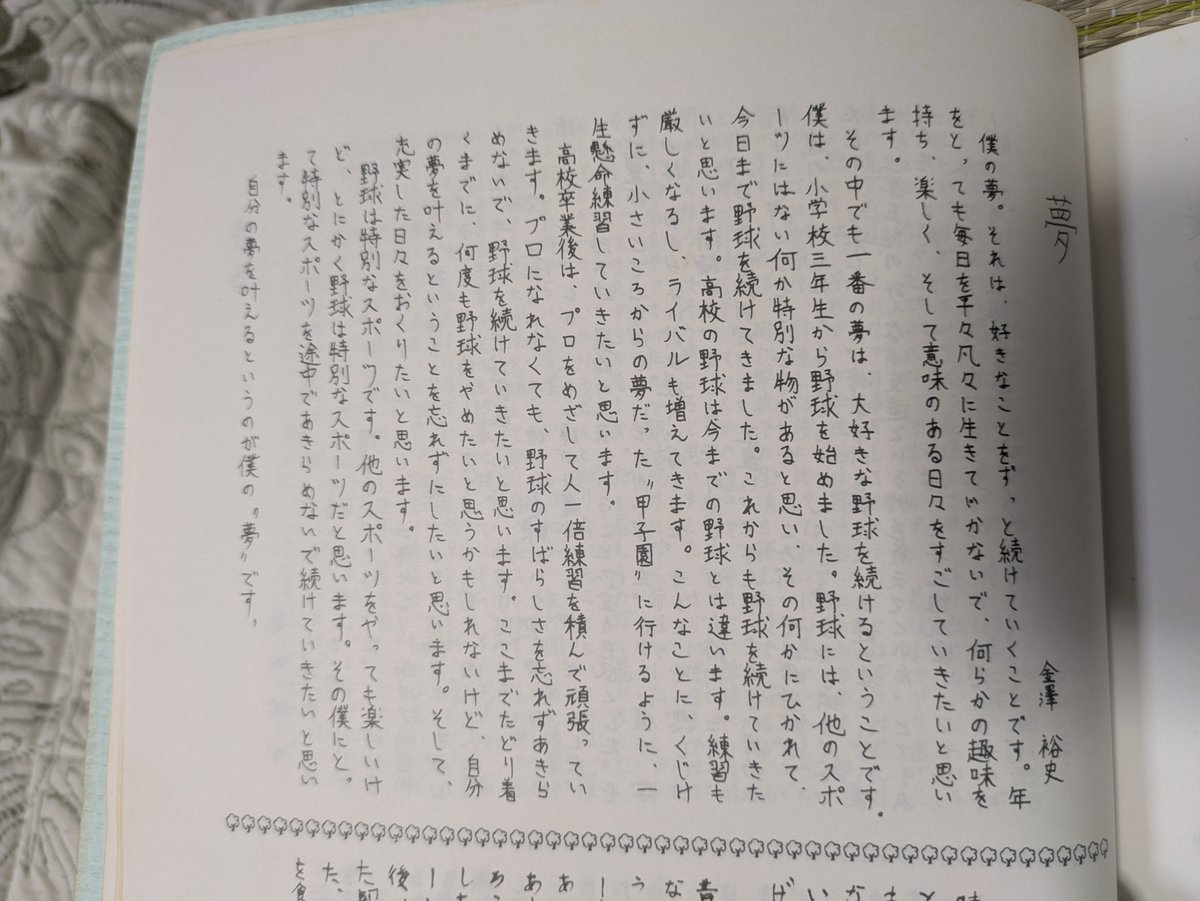 夢
金澤 裕史
僕の夢。それは、好きなことをずっと続けていくことです。年
をとっても毎日を平々凡々に生きていかないで、何らかの趣味を
持ち、楽しく、そして意味のある日々をすごしていきたいと思い
ます。
その中でも一番の夢は、大好きな野球を続けるということです。
僕は、小学校三年生から野球を始めました。野球には、他のスポ
ーツにはない何か特別な物があると思い、その何かにひかれて、
今日まで野球を続けてきました。これからも野球を続けていきた
いと思います。高校の野球は今までの野球とは違います。練習も
厳しくなるし、ライバルも増えてきます。こんなことに、くじけ
ずに、小さいころからの夢だった〝甲子園〟に行けるように、一
生懸命練習していきたいと思います。
高校卒業後は、プロをめざして人一倍練習を積んで頑張ってい
きます。プロになれなくても、野球のすばらしさを忘れずあきら
めないで、野球を続けていきたいと思います。ここまでたどり着
くまでに、何度も野球をやめたいと思うかもしれないけど、自分
の夢を叶えるということを忘れずにしたいと思います。そして、
充実した日々をおくりたいと思います。
野球は特別なスポーツです。他のスポーツをやっても楽しいけ
ど、とにかく野球は特別なスポーツだと思います。その僕にとっ
て特別なスポーツを途中であきらめないで続けていきたいと思い
ます。
自分の夢を叶えるというのが僕の〝夢〟です。